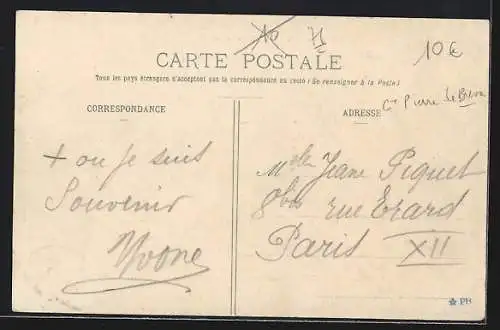 10€
CARTE POSTALE
Tous les pays étrangers n'acceptent pas la correspondance au recto (Se renseigner à la Poste)
CORRESPONDANCE
ADRESSE
Pierre
+ ou je suis
Souvenir
Yvone
Melle Jeane Piquet
8bis rue Erard
Paris XII
PB